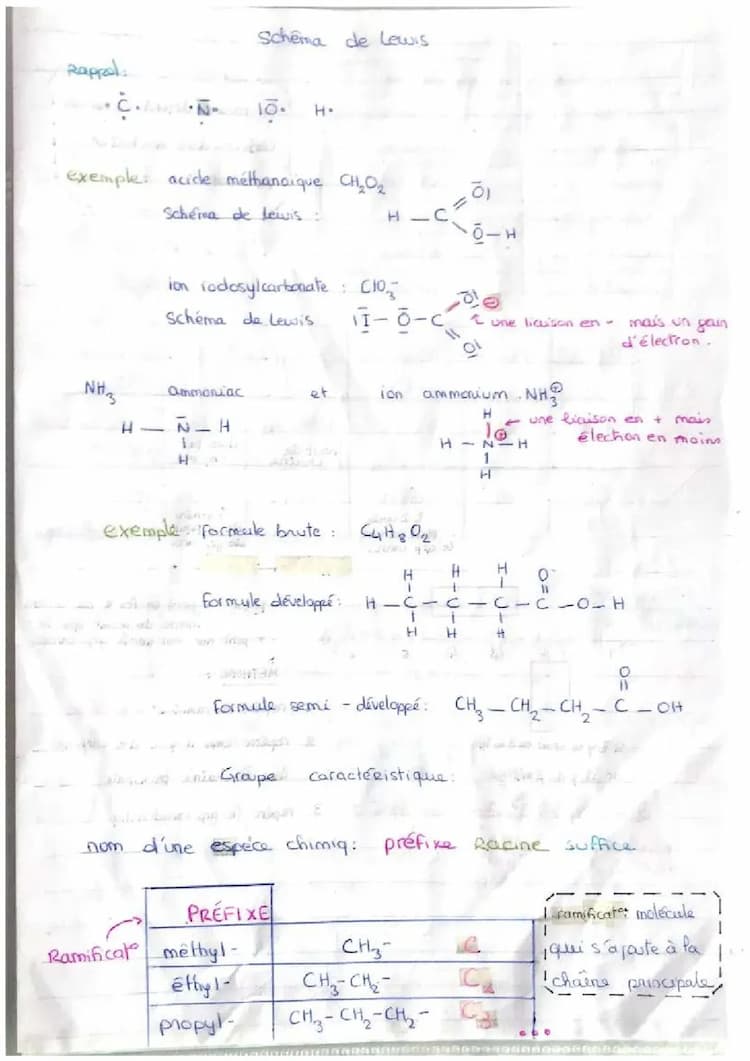 Schéma de Lewis
Rappel:
·C· ·N· |O· H·
exemple: acide méthanoïque CH₂O₂
Schéma de Lewis :
H — C
O|
O — H
ion iodosylcarbonate : ClO₃⁻
Schéma de Lewis |I — O — C
O| ⊖
O|
une liaison en - mais un gain
d'électron.
NH₃ ammoniac et ion ammonium NH₃⊕
H — N — H
H
H
H — N — H
⊕
H
← une liaison en + mais
électron en moins
exemple formule brute : C₄H₈O₂
H H H O
formule développé: H — C — C — C — C — O — H
H H H
O
Formule semi - développé: CH₃ — CH₂ — CH₂ — C — OH
Groupe caractéristique:
nom d'une espéce chimiq: préfixe Racine suffice
PRÉFIXE
Ramificat°
méthyl- CH₃- C
éthyl- CH₃-CH₂- C₂
propyl- CH₃-CH₂-CH₂- C₃
...
ramificat°: molécule
qui s'ajoute à la
chaîne principale